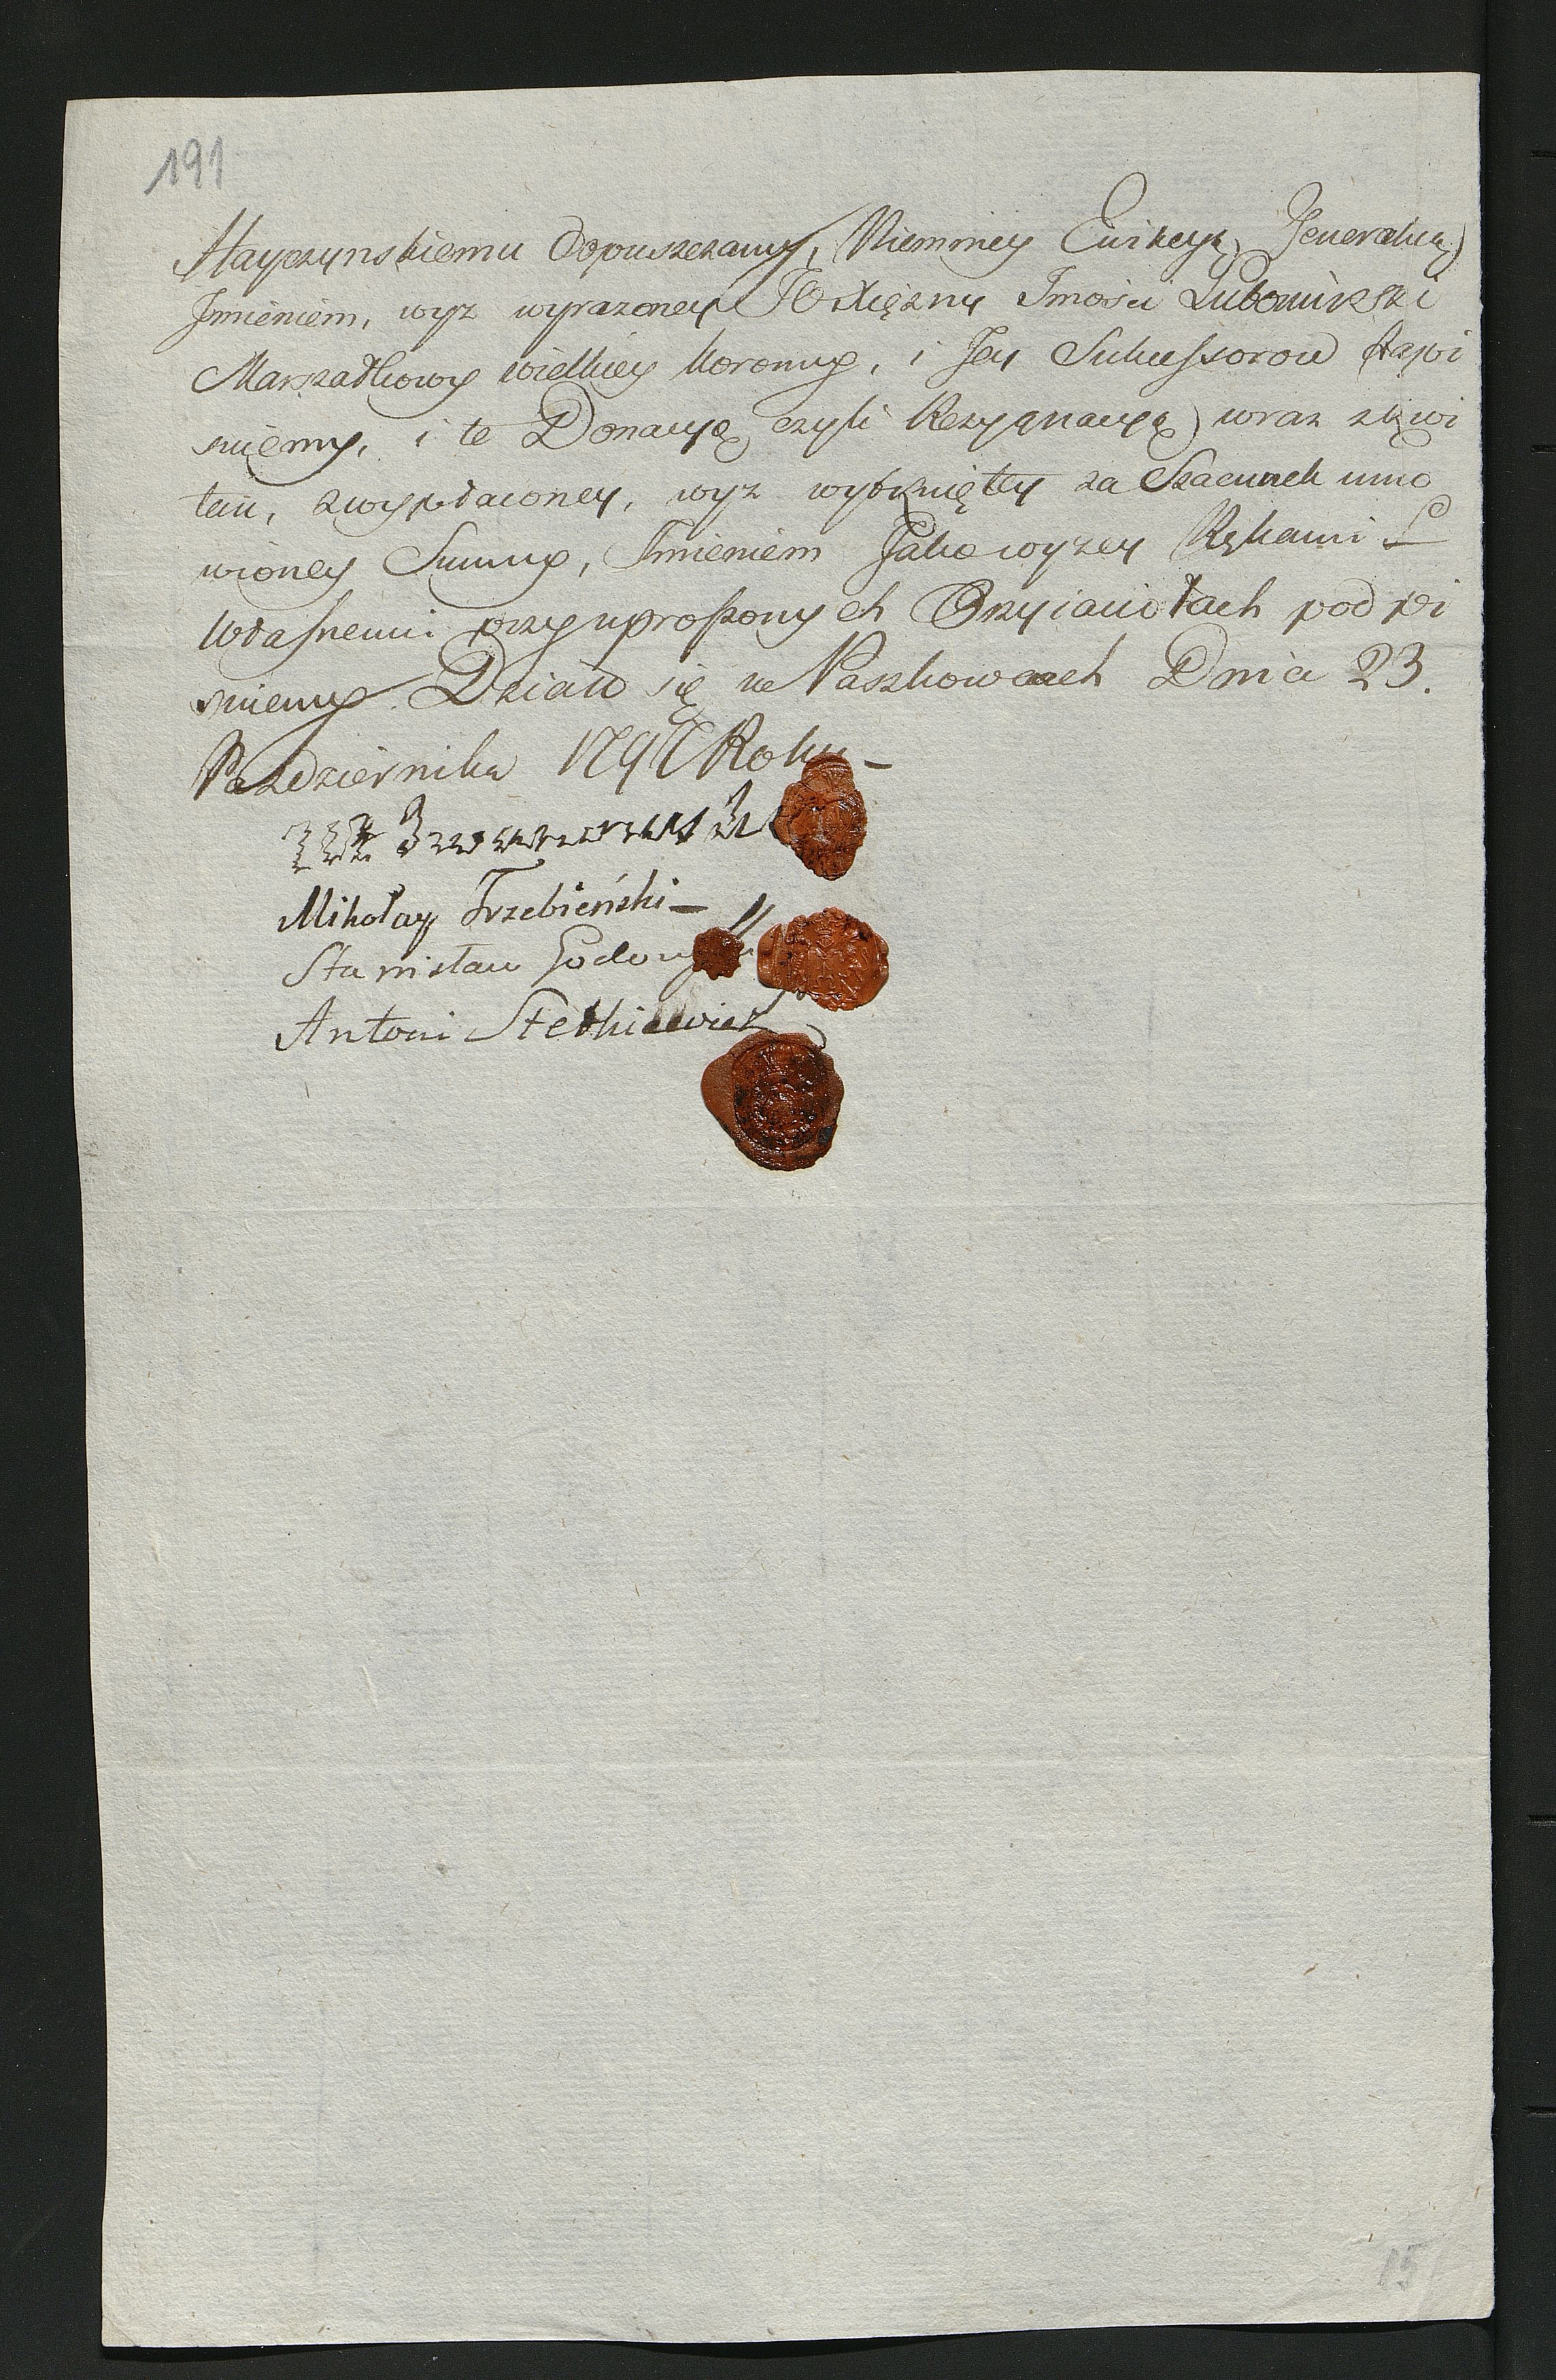 191
Hayczynskiemu dopuszczamy, Niemniey Ewikcyą Jeneralną
Jmieniem, wyz wyrazoney JO Xiężny Jmości Lubomirski
Marszałkowy wielkiey Koronny, i Jey Sukcessorow Zapi
suiemy, i te Donacyą czyli Rezygnacyą wraz z kwi
tem, z wypłaconey, wyz wytkniętey za Szacunek umo
wioney Summy, Jmieniem Jako wyzey Rękami
własnemi przy uproszonych Przyiaciołach podpi
suiemy. Działo się we Paszkowcach Dnia 23.
Pazdziernika 1797 Roku
Mikołay Trzebieński
Stanisław
Antoni Stetkiewicz
15